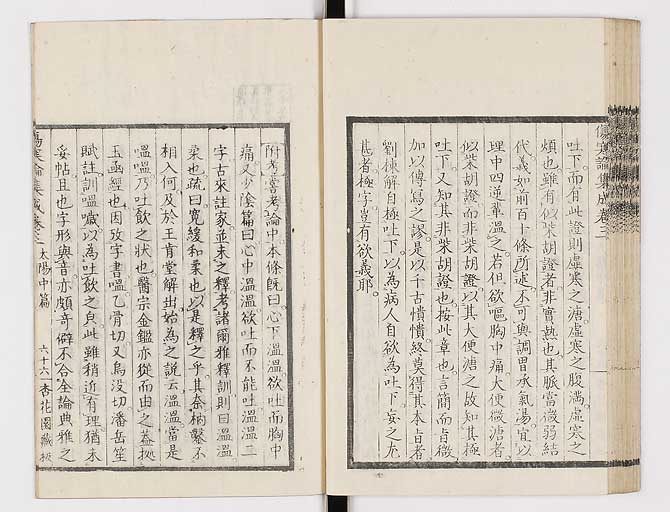 吐下而有此證則虛寒之溏虛寒之腹滿虛寒之
煩也雖有似柴胡證者非實熱也其脈當微弱結
代義如前百十條所述不可與調胃承氣湯宜以
理中四逆輩溫之若但欲嘔胸中痛大便微溏者
似柴胡證而非柴胡證以其大便溏之故知其極
吐下又知其非柴胡證也按此章也言簡而旨微
加以傳寫之謬是以千古憒憒終莫得其本旨者
劉棟解自極吐下以為病人自欲為吐下妄之尤
甚者極字豈有欲義耶
傷寒論集成卷三
附考善考論中本條既曰心下溫溫欲吐而胸中
痛又少陰篇曰心中溫溫欲吐而不能吐溫溫二
字古來註家並未之釋考諸爾雅釋訓則曰溫溫
柔也疏曰寬緩和柔也以是釋之乎其柰枘鑿不
相入何及於王肯堂解出始為之說云溫溫當是
嗢嗢乃吐飲之狀也醫宗金鑑亦從而由之蓋據
玉函經也因攷字書嗢乙骨切又烏沒切潘岳笙
賦註訓嗢噦以為吐飲之皃此雖稍近有理猶未
妥帖且也字形與音亦頗奇僻不合全論典雅之
傷寒論集成卷三 太陽中篇 六十六 杏花園藏板